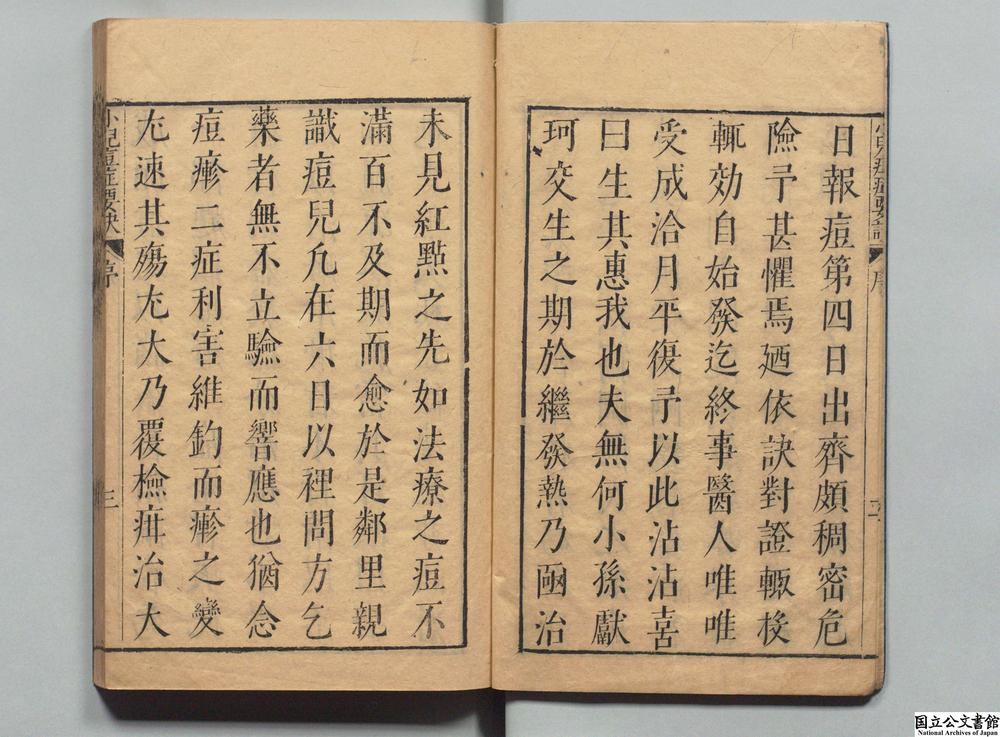 日報痘第四日出齊頗稠密危
險予甚懼焉廼依訣對證輙投
輒効自始發迄終事醫人唯唯
受成洽月平復予以此沾沾喜
曰生其惠我也夫無何小孫獻
珂交生之期於繼發熱乃亟治
未見紅點之先如法療之痘不
滿百不及期而愈於是鄰里親
識痘兒凡在六日以裡問方乞
藥者無不立驗而響應也猶念
痘瘮二症利害維鈞而瘮之變
尤速其殤尤大乃覆檢疿治大
小兒痘症要訣
序
三
国立公文書館
National Archives of Japan